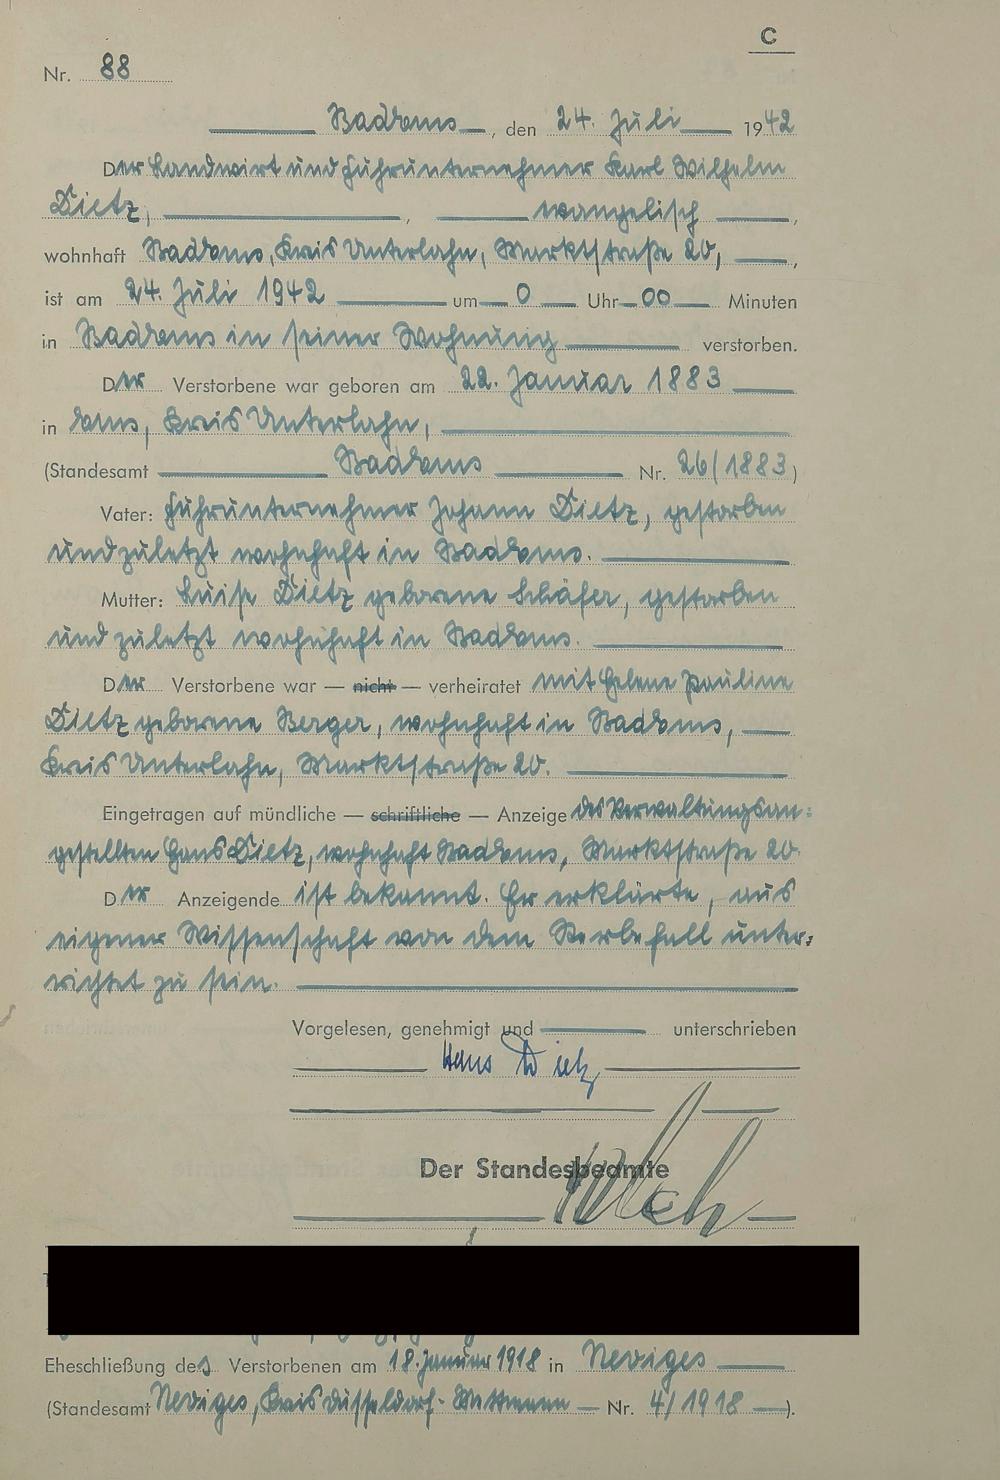 C
Nr. 88
Bad Ems, den 24. Juli 1942
Der Landwirt und Fuhrunternehmer Karl Wilhelm
Dietz, evangelisch,
wohnhaft Bad Ems, Kreis Unterlahn, Marktstraße 20,
ist am 24. Juli 1942 um 0 Uhr 00 Minuten
in Bad Ems in seiner Wohnung verstorben.
Der Verstorbene war geboren am 22. Januar 1883
in Ems, Kreis Unterlahn,
(Standesamt Bad Ems Nr. 26/1883)
Vater: Fuhrunternehmer Johann Dietz, gestorben
und zuletzt wohnhaft in Bad Ems.
Mutter: Luise Dietz geborene Schäfer, gestorben
und zuletzt wohnhaft in Bad Ems.
Der Verstorbene war — nicht — verheiratet mit Helene Pauline
Dietz geborene Berger, wohnhaft in Bad Ems,
Kreis Unterlahn, Marktstraße 20.
Eingetragen auf mündliche — schriftliche — Anzeige des Verwaltungsan=
gestellten Hans Dietz, wohnhaft Bad Ems, Marktstraße 20.
Der Anzeigende ist bekannt. Er erklärte, aus
eigener Wissenschaft von dem Sterbefall unter=
richtet zu sein.
Vorgelesen, genehmigt und unterschrieben
Hans Dietz
Der Standesbeamte
Eheschließung des Verstorbenen am 18. Januar 1918 in Neviges
(Standesamt Neviges, Kreis Düsseldorf-Mettmann — Nr. 4/1918 —).